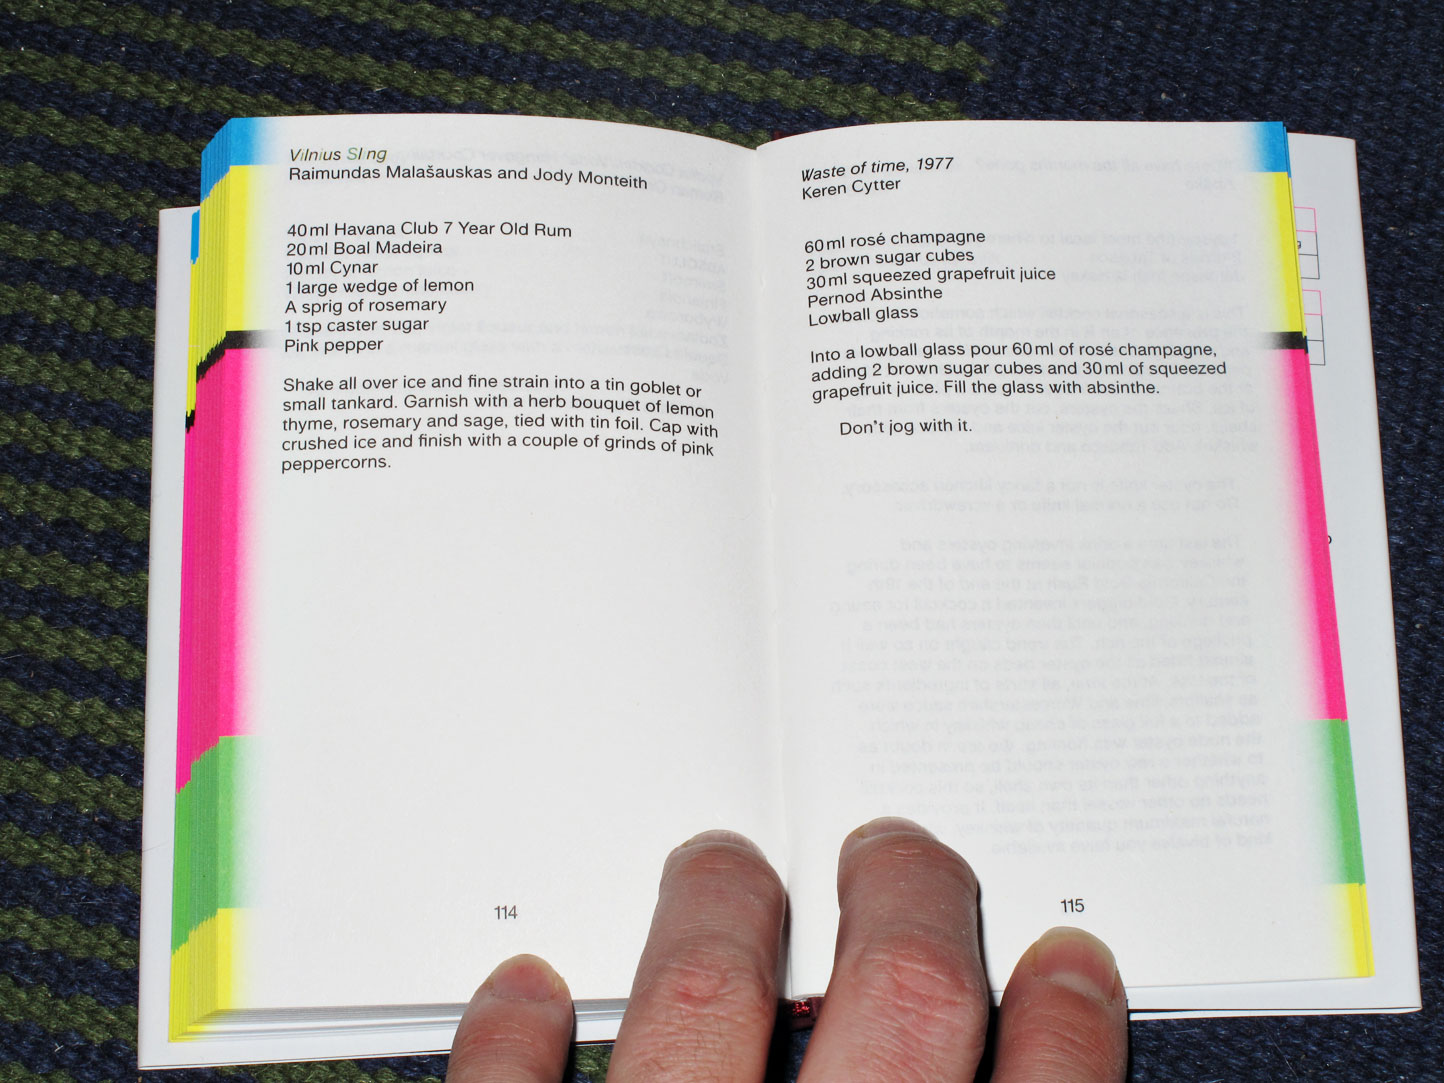 Vilnius Sling
Raimundas Malašauskas and Jody Monteith
40 ml Havana Club 7 Year Old Rum
20 ml Boal Madeira
10 ml Cynar
1 large wedge of lemon
A sprig of rosemary
1 tsp caster sugar
Pink pepper
Shake all over ice and fine strain into a tin goblet or
small tankard. Garnish with a herb bouquet of lemon
thyme, rosemary and sage, tied with tin foil. Cap with
crushed ice and finish with a couple of grinds of pink
peppercorns.
114
Waste of time, 1977
Keren Cytter
60 ml rosé champagne
2 brown sugar cubes
30 ml squeezed grapefruit juice
Pernod Absinthe
Lowball glass
Into a lowball glass pour 60 ml of rosé champagne,
adding 2 brown sugar cubes and 30 ml of squeezed
grapefruit juice. Fill the glass with absinthe.
Don't jog with it.
115